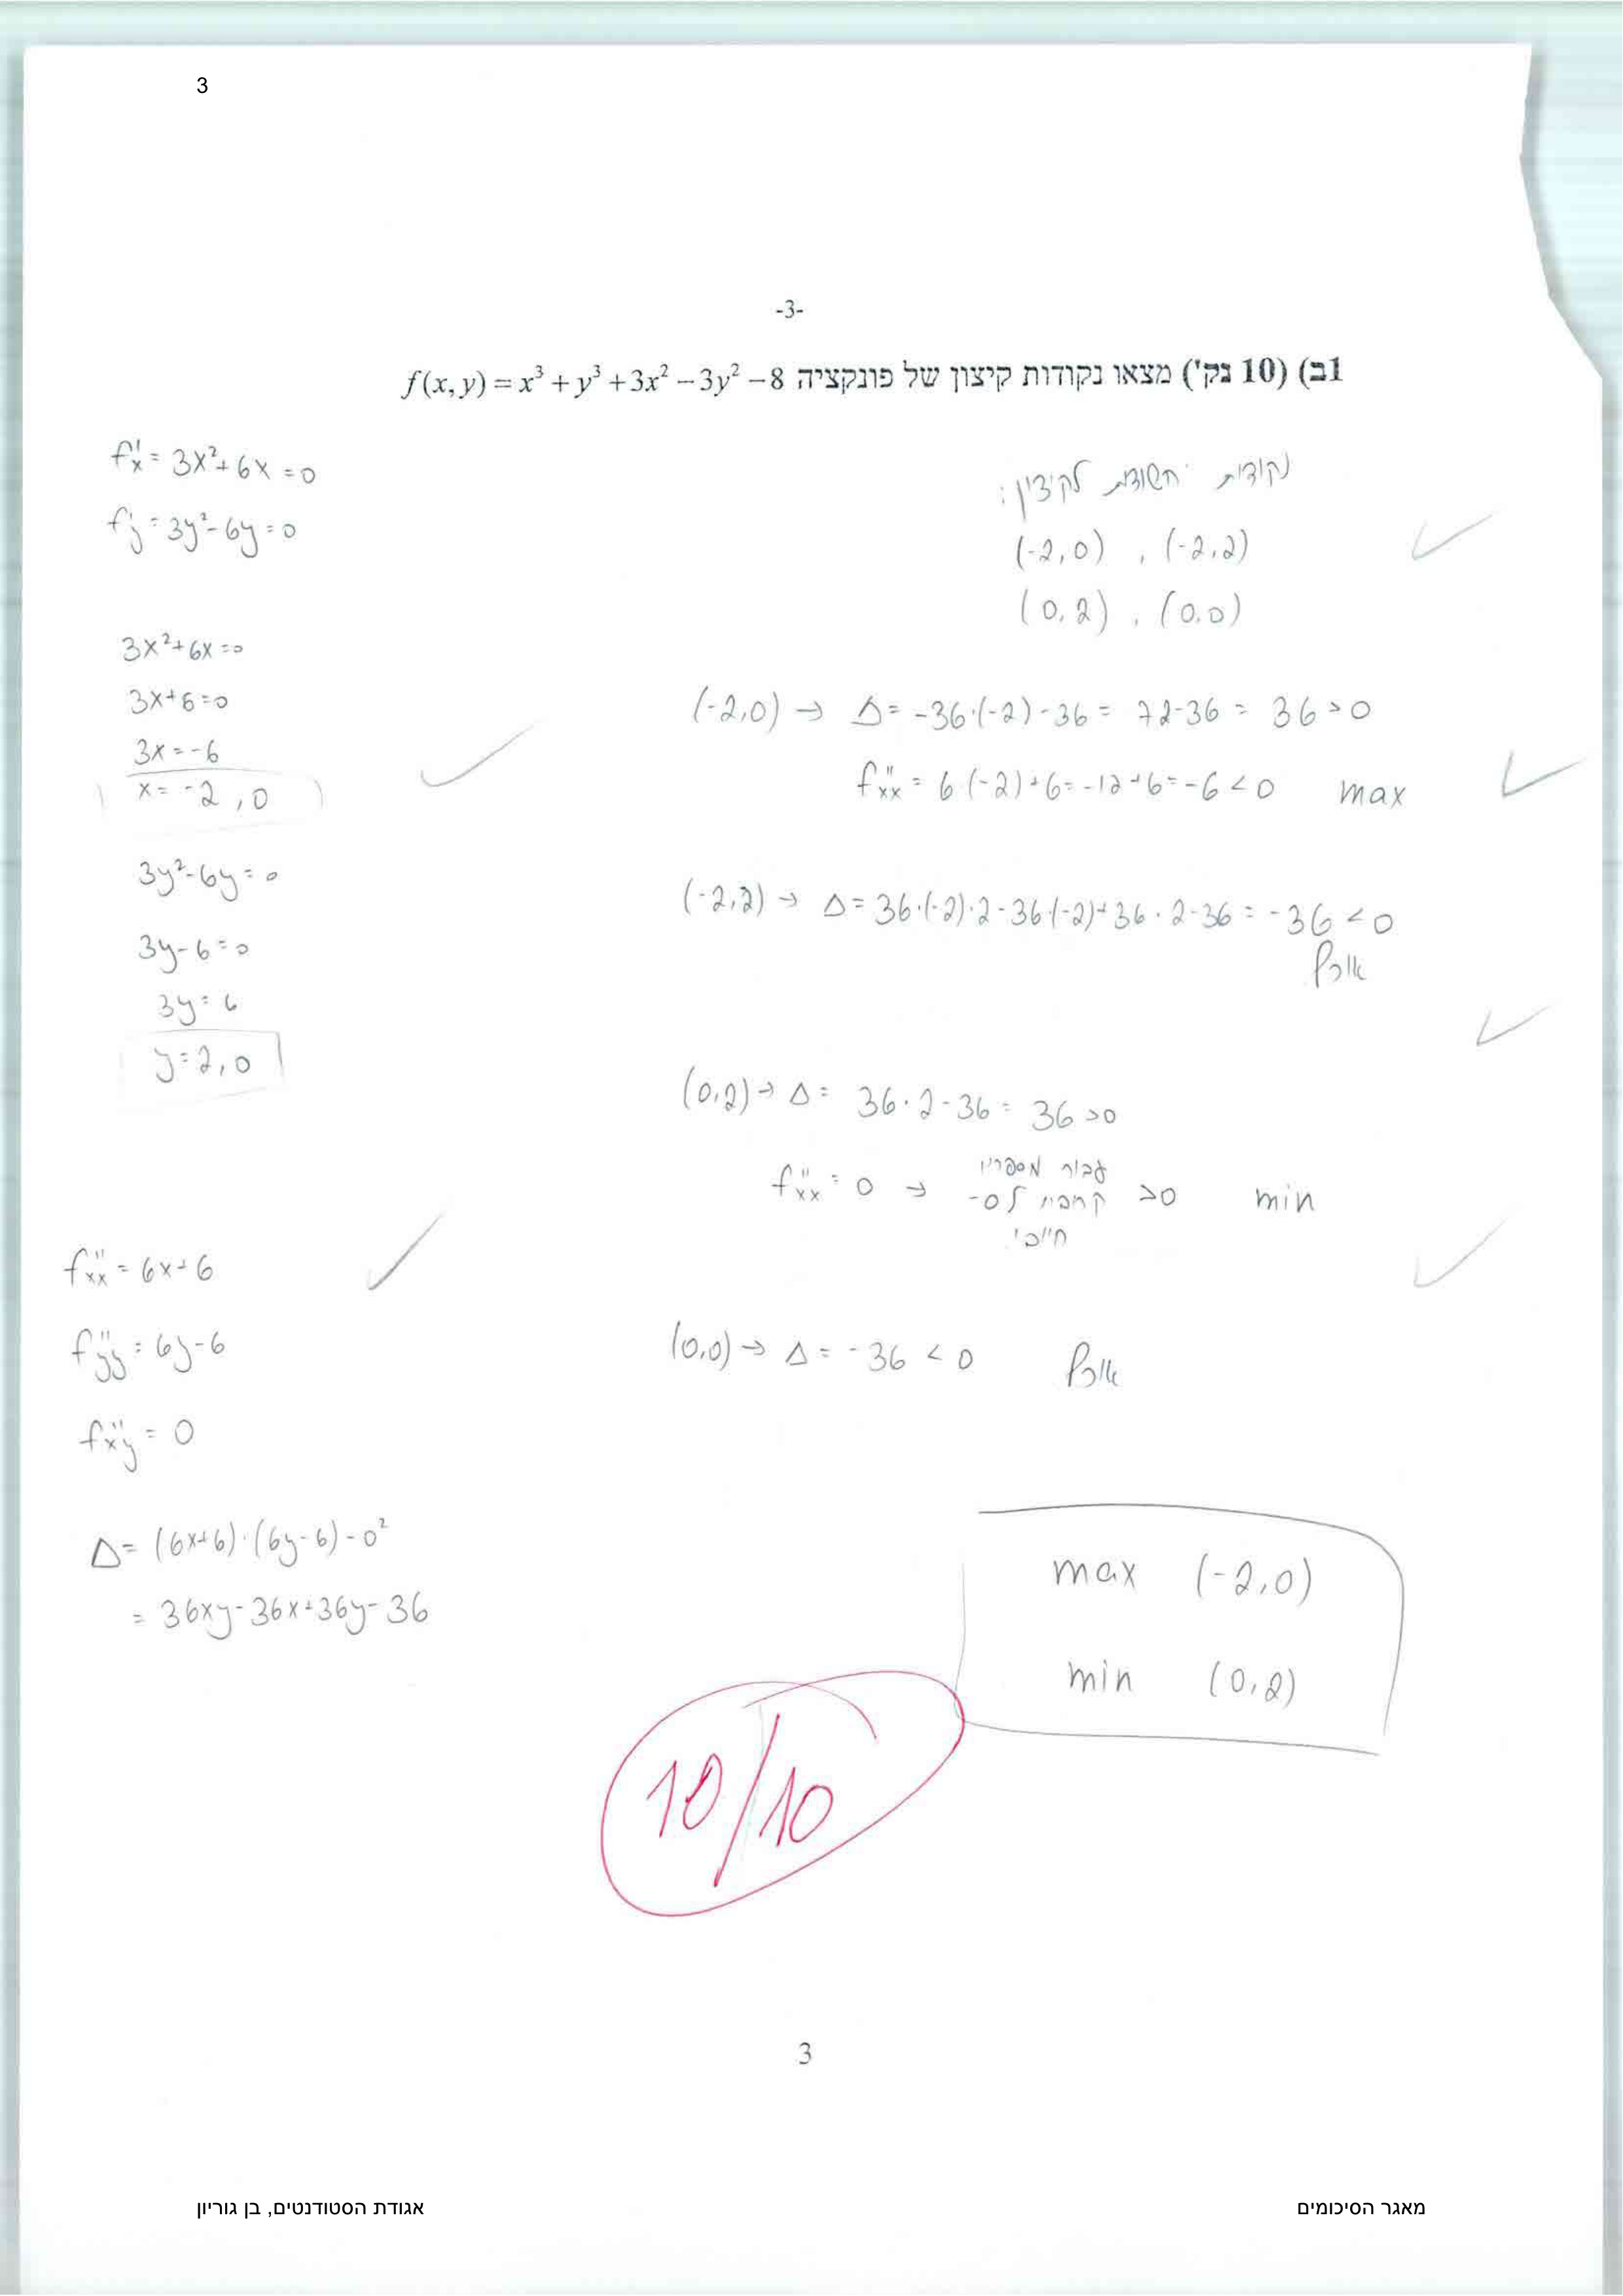 3
-3-
1ב) (10 נק') מצאו נקודות קיצון של פונקציה f(x,y) = x³ + y³ + 3x² − 3y² − 8
f'x = 3x² + 6x = 0
f'y = 3y² - 6y = 0
3x² + 6x = 0
3x + 6 = 0
3x = -6
x = -2, 0
3y² - 6y = 0
3y - 6 = 0
3y = 6
y = 2, 0
f''xx = 6x + 6
f''yy = 6y - 6
f''xy = 0
Δ = (6x+6)·(6y-6) - 0²
= 36xy - 36x + 36y - 36
נקודות חשודות לקיצון:
(-2,0) , (-2,2)
(0,2) , (0,0)
(-2,0) → Δ = -36·(-2) - 36 = 72 - 36 = 36 > 0
f''xx = 6·(-2) + 6 = -12 + 6 = -6 < 0 max
(-2,2) → Δ = 36·(-2)·2 - 36·(-2) + 36·2 - 36 = -36 < 0
אוכף
(0,2) → Δ = 36·2 - 36 = 36 > 0
f''xx = 0 → עבור מספרים
קרובים ל-0 >0 min
חיובי
(0,0) → Δ = -36 < 0 אוכף
max (-2,0)
min (0,2)
10/10
3
מאגר הסיכומים אגודת הסטודנטים, בן גוריון